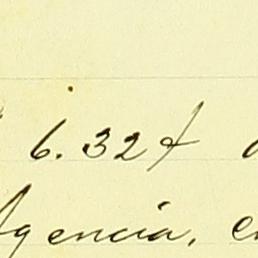 6.327
Agencia,